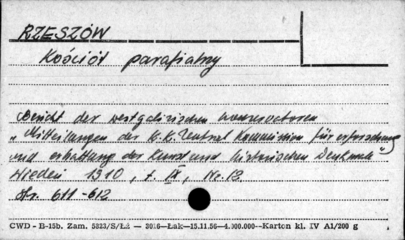 RZESZÓW
Kościół parafialny
Bericht der westgalizischen konservatoren
"Mitteilungen der K.K. Zentral Kommission für erforschung
und erhaltung der Kunst und historischen Denkmale"
Wieden 1910, t. IX, Nr. 13.
Str. 611-612
CWD - B-15b. Zam. 5323/S/Łź — 3016—Łak—15.11.56—4.000.000—Karton kl. IV A1/200 g